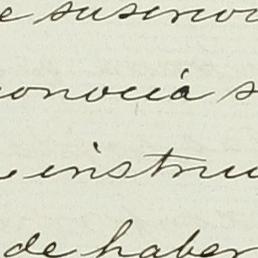 e suscrou
onocia s
instruc
de haber